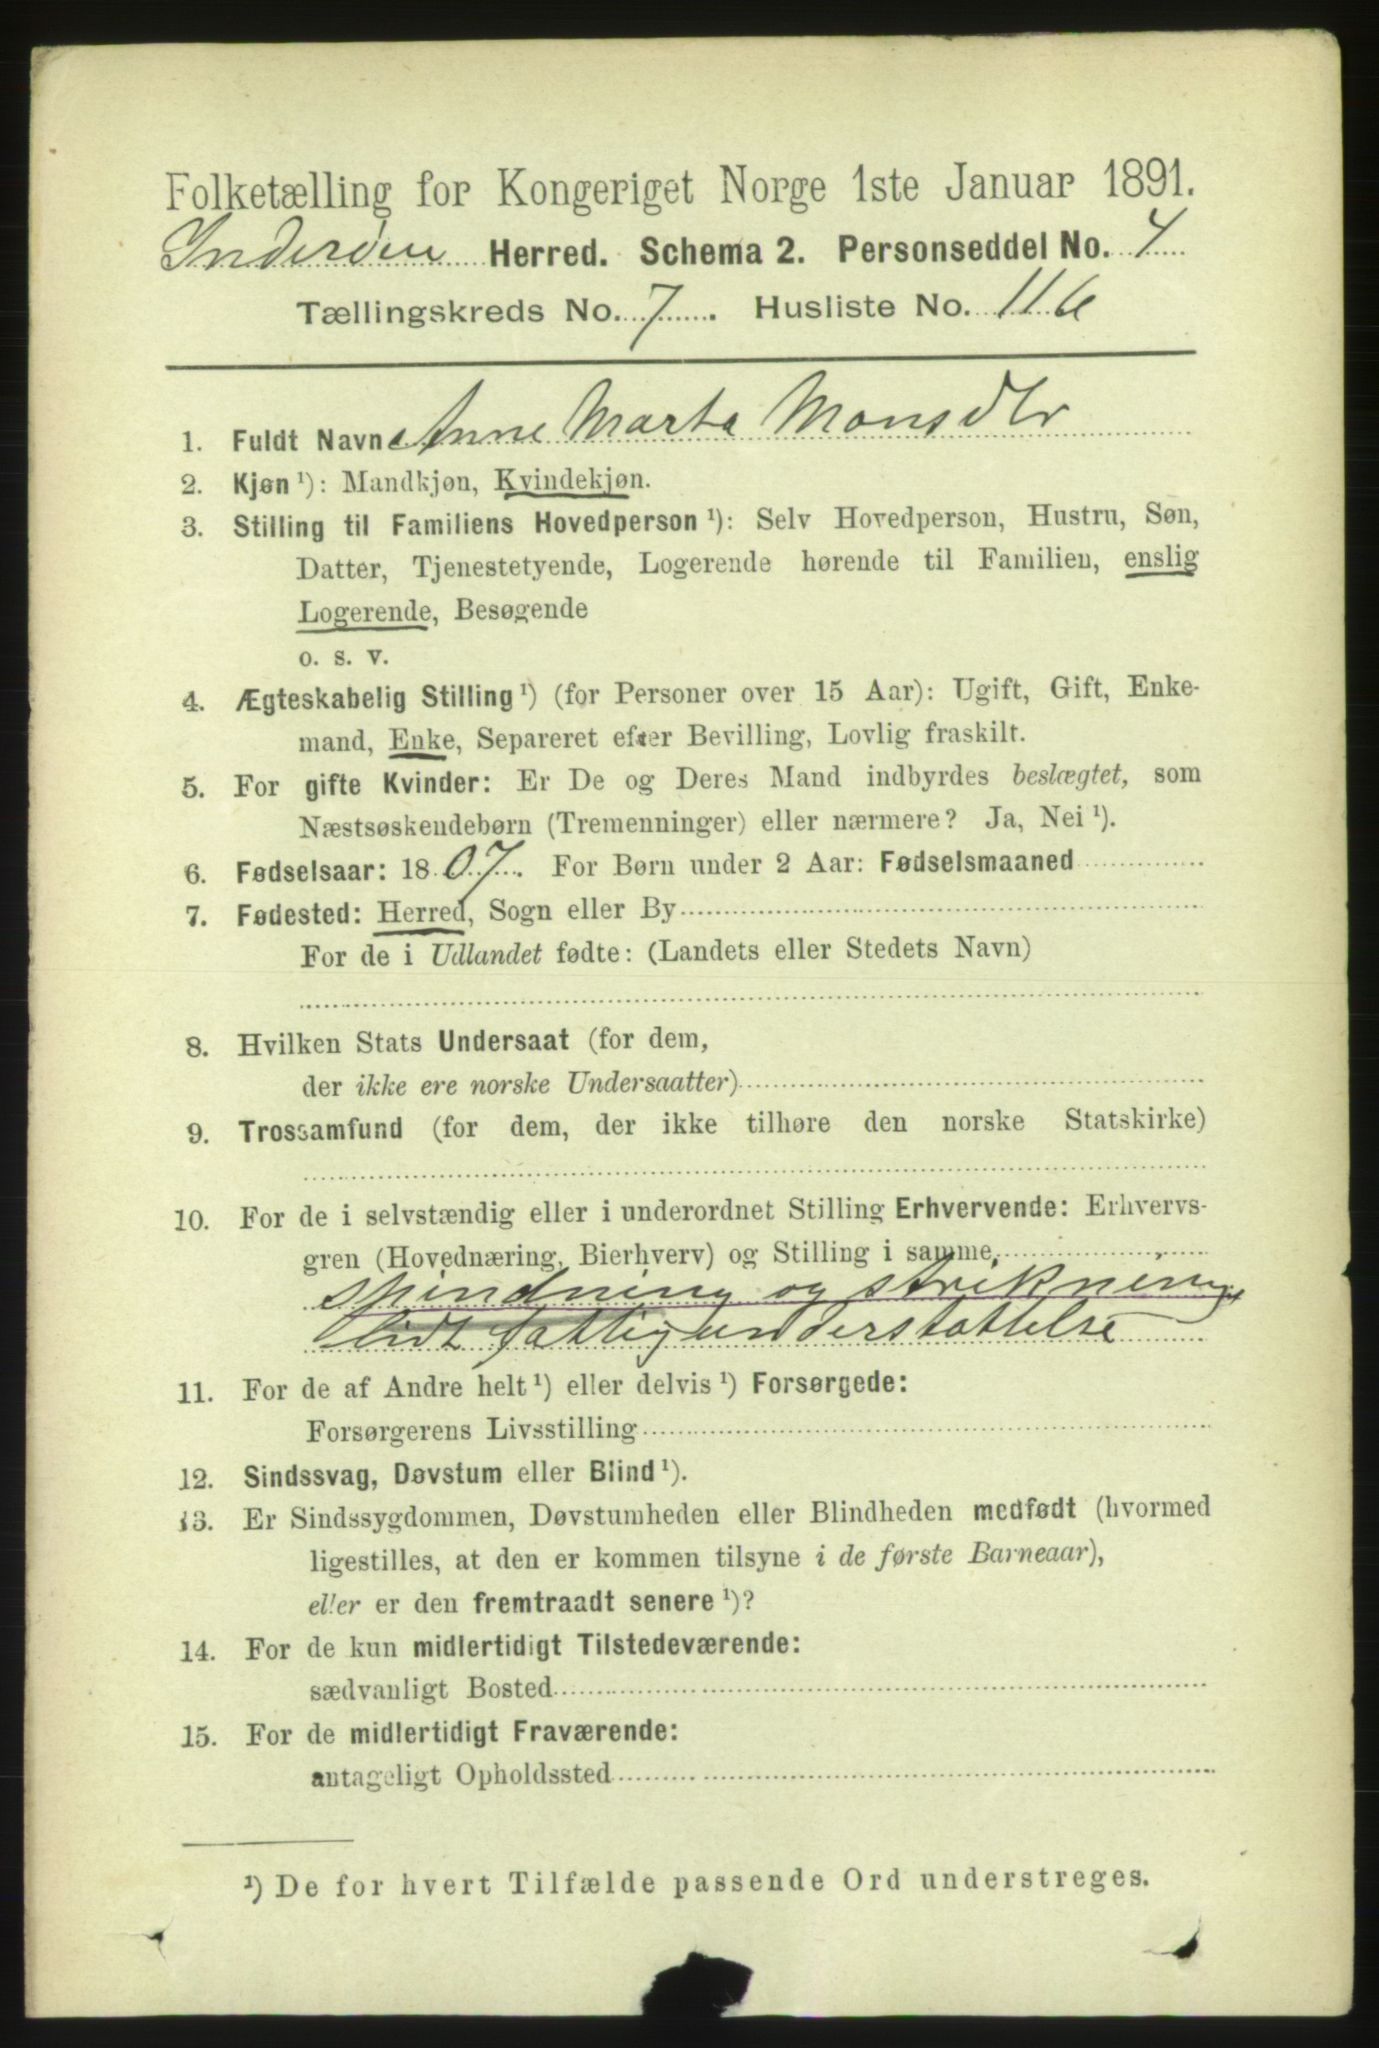 Folketælling for Kongeriget Norge 1ste Januar 1891.
Inderøen Herred. Schema 2. Personseddel No. 4
Tællingskreds No. 7. Husliste No. 116
1. Fuldt Navn Anne Marta Monsdtr
2. Kjøn ¹): Mandkjøn, Kvindekjøn.
3. Stilling til Familiens Hovedperson ¹): Selv Hovedperson, Hustru, Søn,
Datter, Tjenestetyende, Logerende hørende til Familien, enslig
Logerende, Besøgende
o. s. v.
4. Ægteskabelig Stilling ¹) (for Personer over 15 Aar): Ugift, Gift, Enke-
mand, Enke, Separeret efter Bevilling, Lovlig fraskilt.
5. For gifte Kvinder: Er De og Deres Mand indbyrdes beslægtet, som
Næstsøskendebørn (Tremenninger) eller nærmere? Ja, Nei ¹).
6. Fødselsaar: 1807. For Børn under 2 Aar: Fødselsmaaned
7. Fødested: Herred, Sogn eller By
For de i Udlandet fødte: (Landets eller Stedets Navn)
8. Hvilken Stats Undersaat (for dem,
der ikke ere norske Undersaatter)
9. Trossamfund (for dem, der ikke tilhøre den norske Statskirke)
10. For de i selvstændig eller i underordnet Stilling Erhvervende: Erhvervs-
gren (Hovednæring, Bierhverv) og Stilling i samme
spindning og strikning
lidt fattigunderstøttelse
11. For de af Andre helt ¹) eller delvis ¹) Forsørgede:
Forsørgerens Livsstilling
12. Sindssvag, Døvstum eller Blind ¹).
13. Er Sindssygdommen, Døvstumheden eller Blindheden medfødt (hvormed
ligestilles, at den er kommen tilsyne i de første Barneaar),
eller er den fremtraadt senere ¹)?
14. For de kun midlertidigt Tilstedeværende:
sædvanligt Bosted
15. For de midlertidigt Fraværende:
antageligt Opholdssted
¹) De for hvert Tilfælde passende Ord understreges.